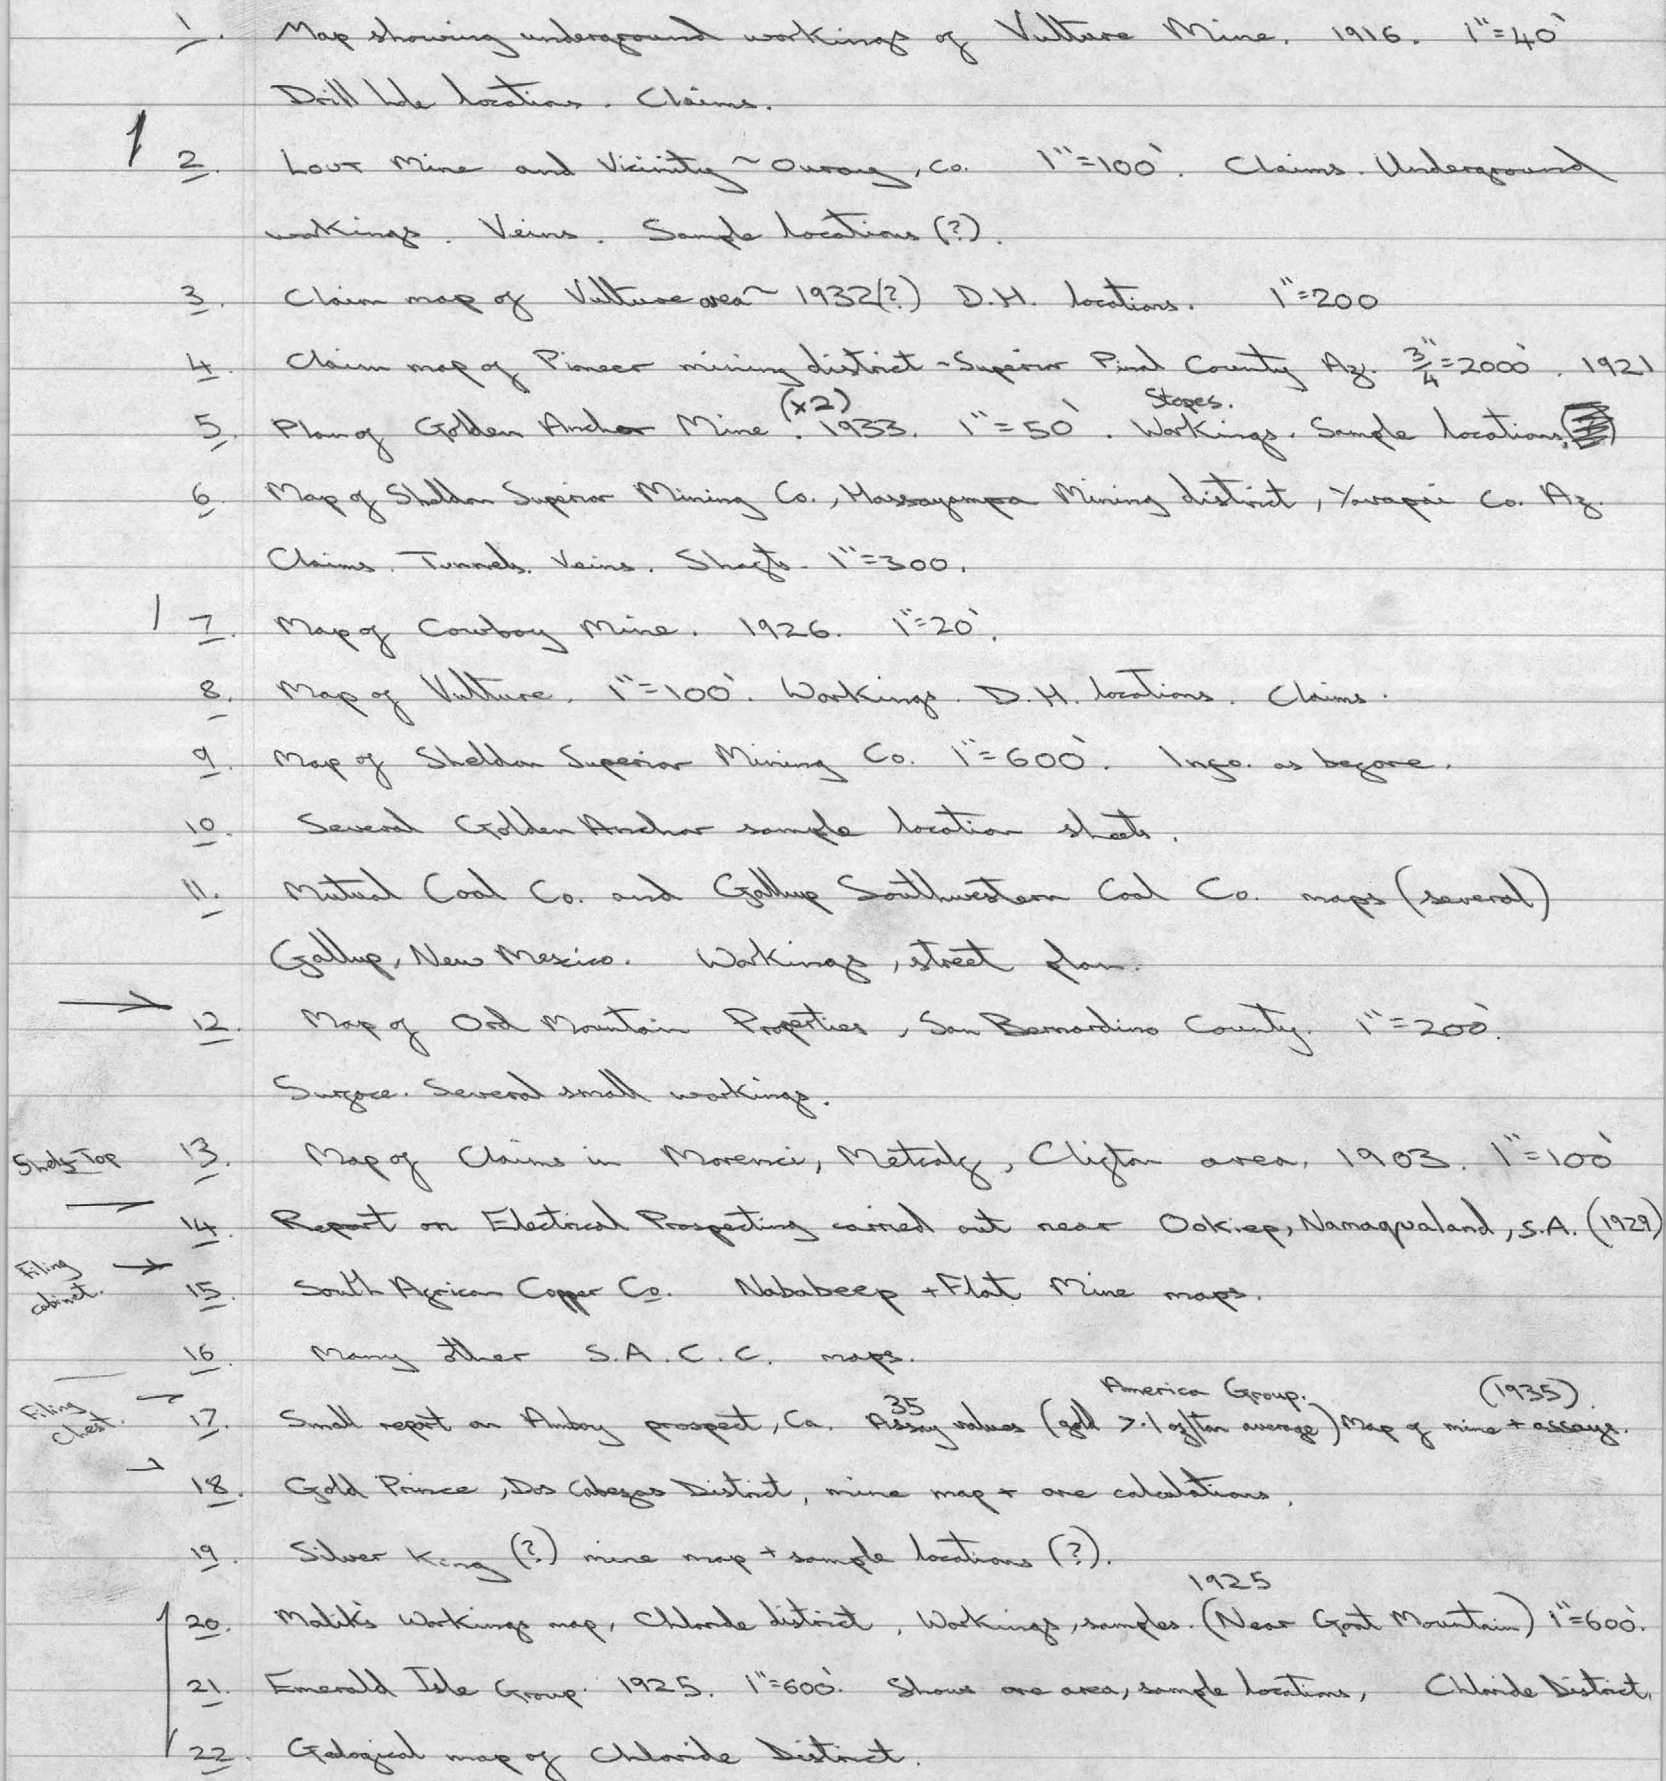 1. Map showing underground workings of Vulture Mine. 1916. 1"=40'
Drill hole locations. Claims.
2. Lout Mine and Vicinity ~ Ouray, Co. 1"=100'. Claims. Underground
workings. Veins. Sample locations (?).
3. Claim map of Vulture area ~ 1932(?) D.H. locations. 1"=200
4. Claim map of Pioneer mining district - Superior Pinal County Az. 3/4"=2000'. 1921
5. Plan of Golden Anchor Mine (x2). 1933. 1"=50'. Stopes. Workings. Sample locations.
6. Map of Sheldon Superior Mining Co., Hassayampa Mining district, Yavapai Co. Az.
Claims. Tunnels. Veins. Shafts. 1"=300.
7. Map of Cowboy Mine. 1926. 1"=20'.
8. Map of Vulture. 1"=100'. Workings. D.H. locations. Claims.
9. Map of Sheldon Superior Mining Co. 1"=600'. Info. as before.
10. Several Golden Anchor sample location sheets.
11. Mutual Coal Co. and Gallup Southwestern Coal Co. maps (several)
Gallup, New Mexico. Workings, street plan.
12. Map of Ord Mountain Properties, San Bernardino County. 1"=200'.
Surface. Several small workings.
13. Map of Claims in Morenci, Metcalf, Clifton area. 1903. 1"=100'
Top
14. Report on Electrical Prospecting carried out near Ookiep, Namaqualand, S.A. (1929)
Filing
cabinet.
15. South African Copper Co. Nababeep + Flat Mine maps.
16. Many other S.A.C.C. maps.
America Group. (1935).
Filing
Chest.
17. Small report on Amboy prospect, Ca. 35 Assay values (gold >.1 oz/ton average) Map of mine + assays.
18. Gold Prince, Dos Cabezas District, mine map + ore calculations.
19. Silver King (?) mine map + sample locations (?).
1925
20. workings map, Chloride district. Workings, samples. (Near Goat Mountain) 1"=600'.
21. Emerald Isle Group. 1925. 1"=600'. Shows ore area, sample locations, Chloride District.
22. Geological map of Chloride District.